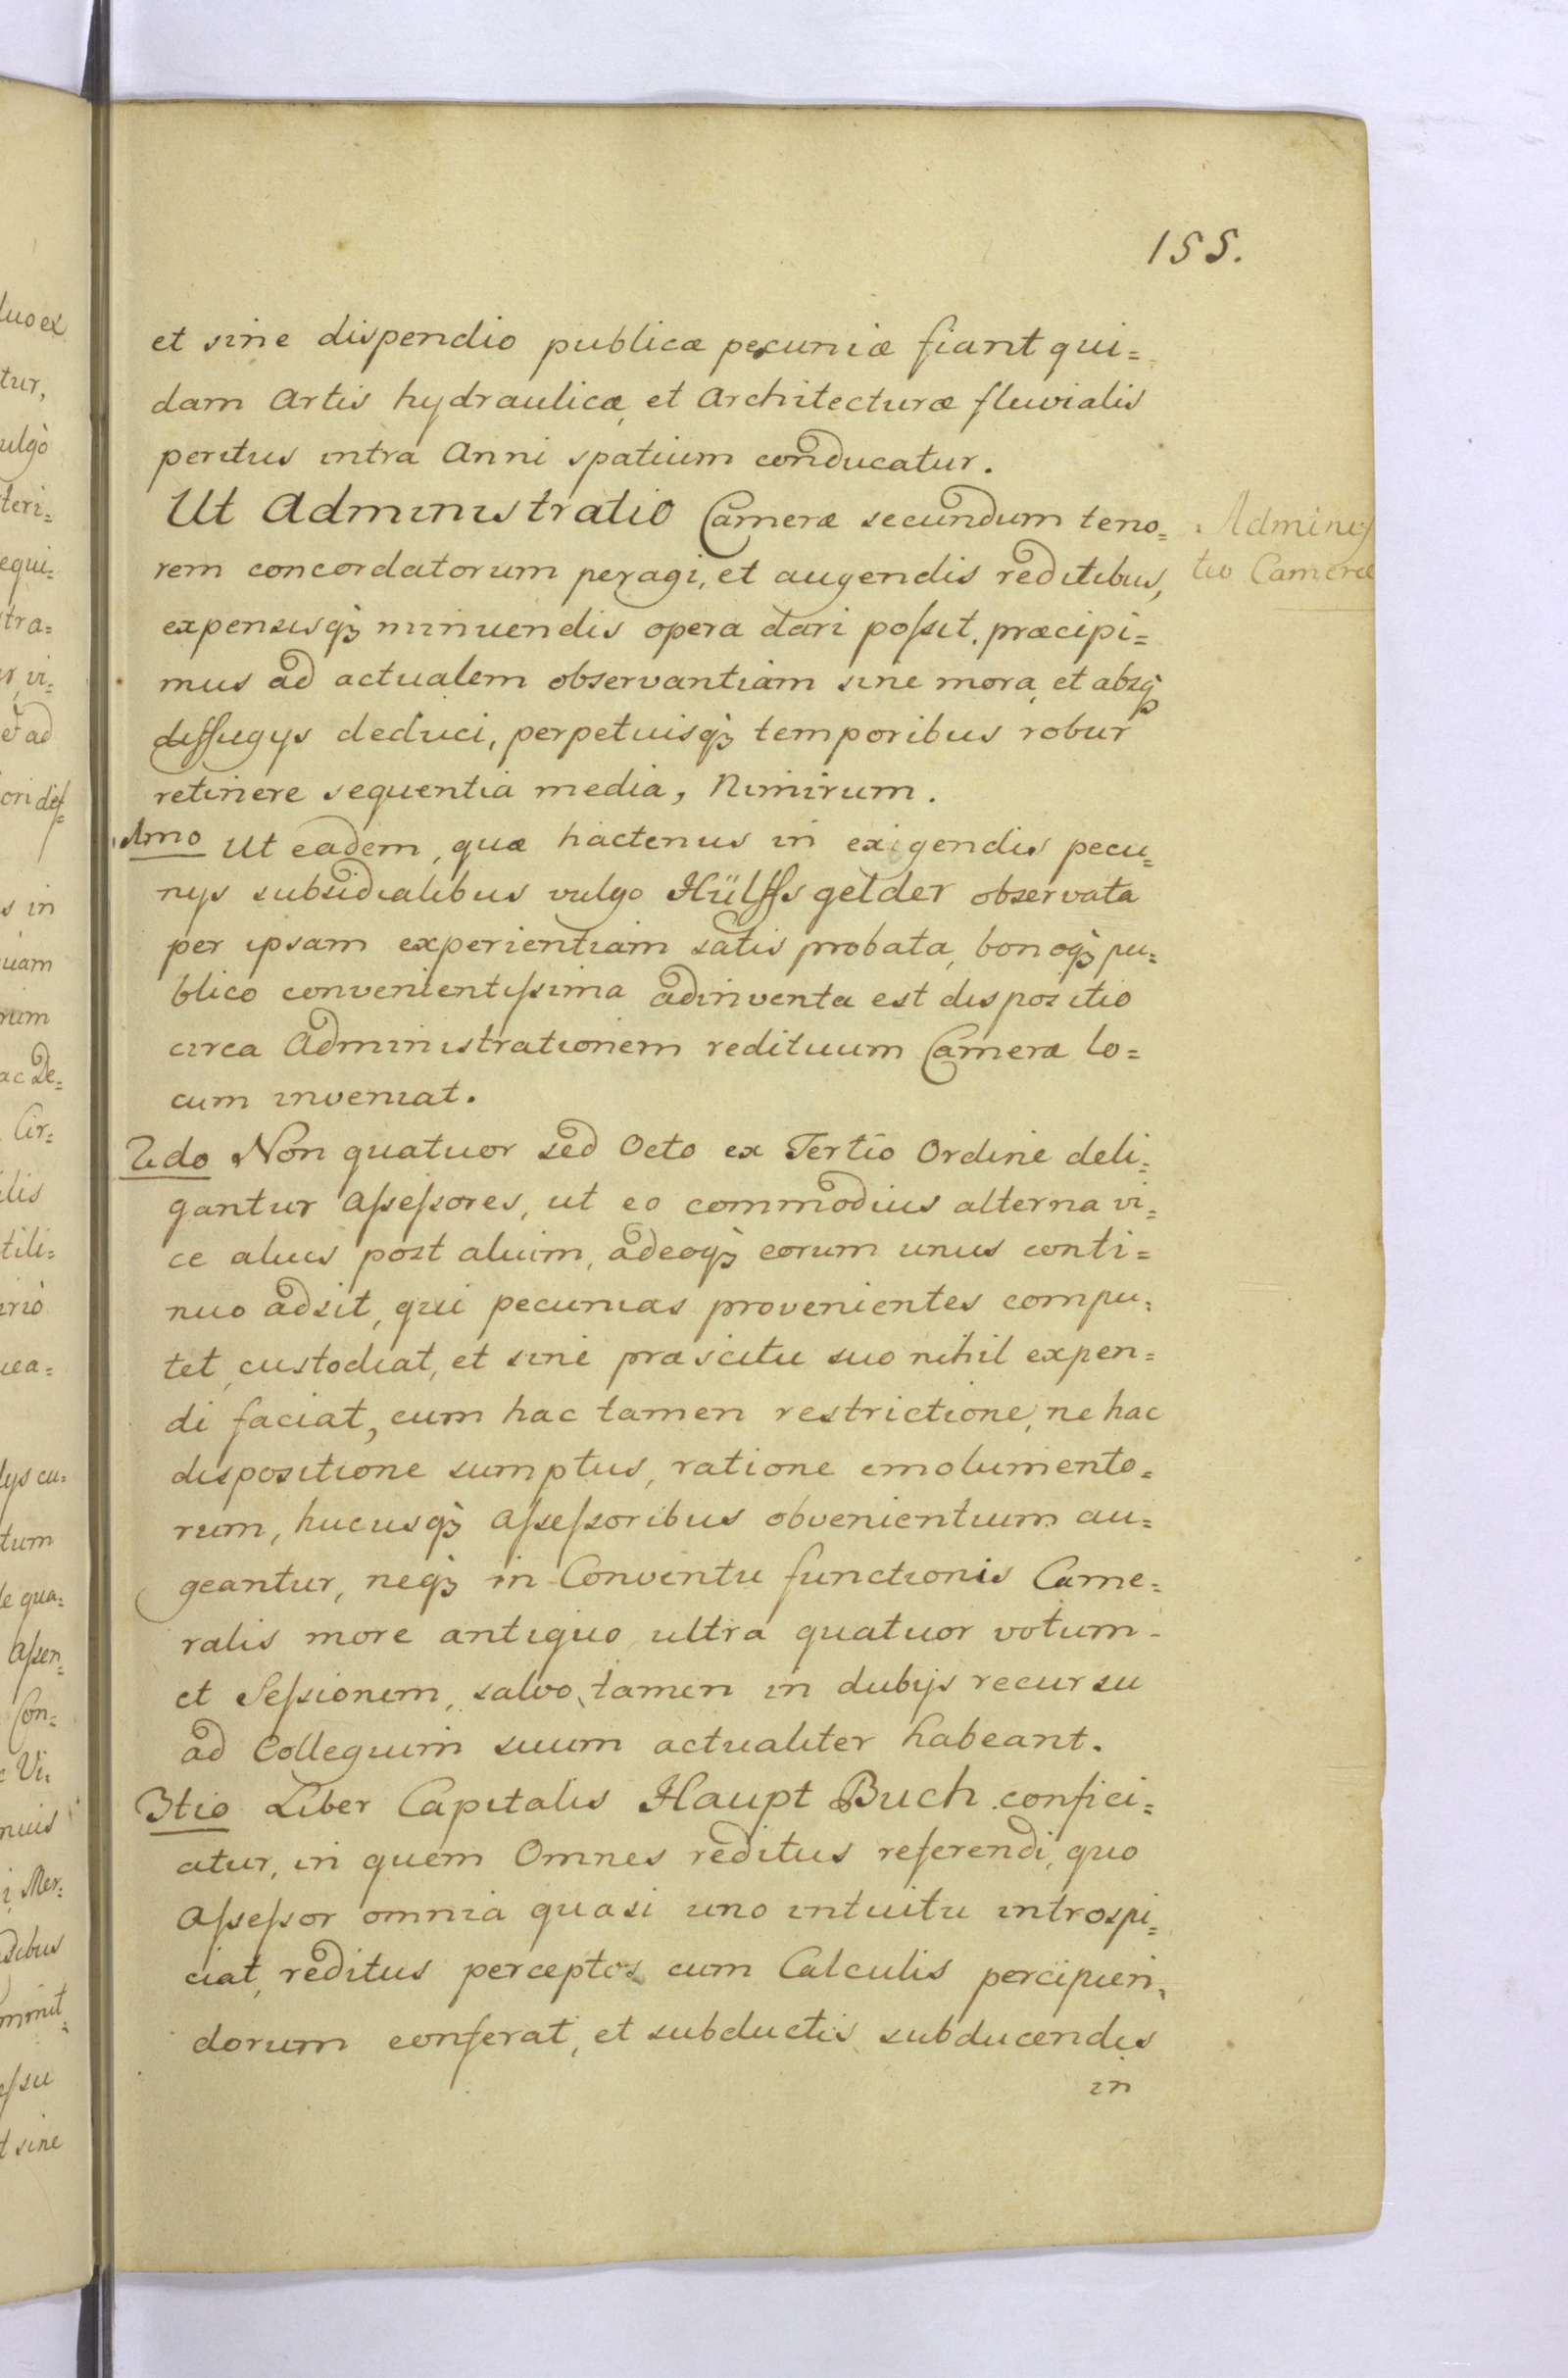 155.
et sine dispendio publicæ pecuniæ fiant qui=
dam Artis hydraulicæ, et Architecturæ fluvialis
peritus intra Anni spatium conducatur.
Ut Administratio Cameræ secundum teno=
rem concordatorum peragi, et augendis reditibus,
expensisqꝫ minuendis opera dari poſsit, præcipi=
mus ad actualem observantiam sine mora, et absqꝫ
diffugÿs deduci, perpetuisqꝫ temporibus robur
retinere sequentia media, Nimirum.
Adminis
tio Cameræ
1mo Ut eadem, quæ hactenus in exigendis pecu=
nÿs subsidialibus vulgo Hülffsgelder observata
per ipsam experientiam satis probata, bonoqꝫ pu=
blico convenientiſsima adinventa est dispositio
circa Administrationem redituum Cameræ lo=
cum inveniat.
2do Non quatuor sed Octo ex Tertio Ordine deli=
gantur Aſseſsores, ut eo commodius alterna vi=
ce alius post alium, adeoqꝫ eorum unus conti=
nuo adsit, qui pecunias provenientes compu=
tet, custodiat, et sine præscitu suo nihil expen=
di faciat, cum hac tamen restrictione, ne hac
dispositione sumptus, ratione emolumento=
rum, hucusqꝫ Aſseſsoribus obvenientium au=
geantur, neqꝫ in Conventu functionis Came=
ralis more antiquo ultra quatuor votum
et Seſsionem, salvo tamen in dubÿs recursu
ad Collegium suum actualiter habeant.
3tio Liber Capitalis Haupt Buch confici=
atur, in quem Omnes reditus referendi, quo
Aſseſsor omnia quasi uno intuitu introspi=
ciat, reditus perceptos cum Calculis percipien=
dorum conferat, et subductis subducendis
in